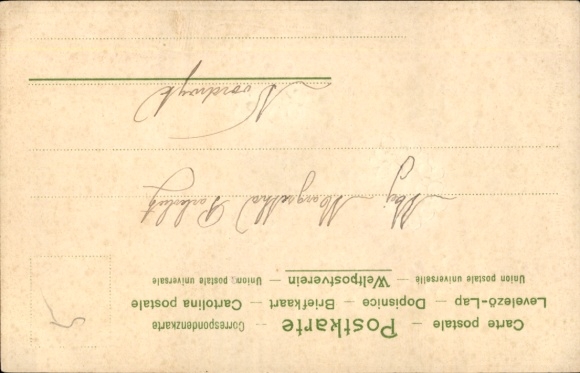 Carte postale — Postkarte — Correspondenzkarte
Levelező-Lap — Dopisnice — Briefkaart — Cartolina postale
Union postale universelle — Weltpostverein — Union postale universale
Mej Margretha
Noordwyk